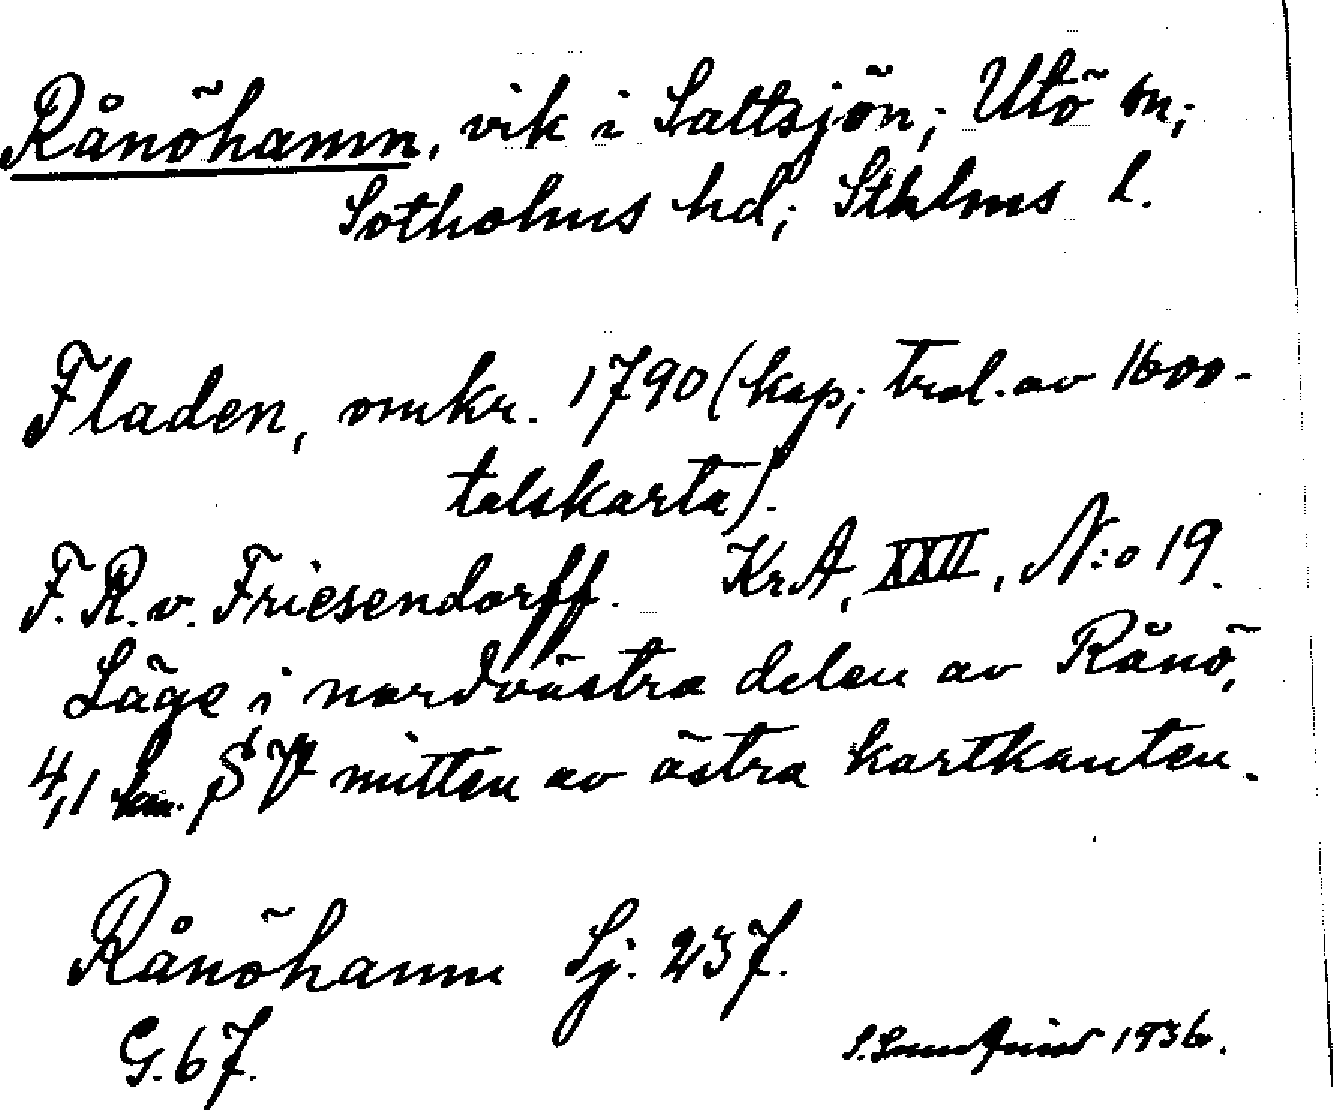 Rånöhamn, vik i Saltsjön; Utö sn;
Sotholms hd; Sthlms l.
Fladen, omkr. 1790 (kop; trol. av 1600-
talskarta).
F. R. v. Friesendorff. KrA, XXII, N:o 19.
Läge i nordvästra delen av Rånö,
4,1 km. SV mitten av östra kartkanten.
Rånöhamn Sj. 237.
G. 67.
1936.